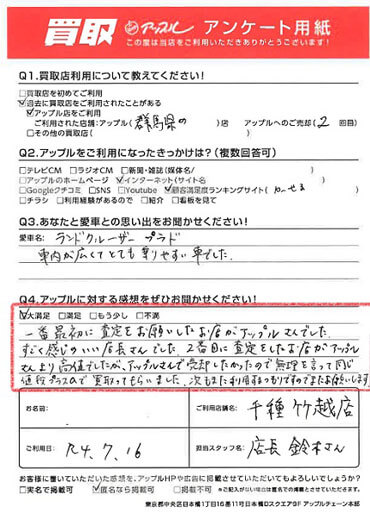 買取 アップル アンケート用紙
この度は当店をご利用いただきありがとうございます!
Q1.買取店利用について教えてください!
□買取店を初めてご利用
☑過去に買取店をご利用されたことがある
☑アップル店をご利用
ご利用された店舗:アップル( 群馬県の )店 アップルへのご売却( 2 回目)
□その他の買取店( )
Q2.アップルをご利用になったきっかけは?(複数回答可)
□テレビCM □ラジオCM □新聞・雑誌(媒体名/ )
□アップルのホームページ ☑インターネット(サイト名 )
□Googleクチコミ □SNS □Youtube ☑顧客満足度ランキングサイト( )
□チラシ □利用経験があるので □紹介 □看板を見て
Q3.あなたと愛車との思い出をお聞かせください!
愛車名: ランドクルーザー プラド
車内が広くてとても乗りやすい車でした。
Q4.アップルに対する感想をぜひお聞かせください!
☑大満足 □満足 □もう少し □不満
一番最初に査定をお願いしたお店がアップルさんでした。
すごく感じのいい店長さんでした。2番目に査定をしたお店がアップル
さんより高値でしたが、アップルさんで売却したかったので無理を言って同じ
値段プラスαで買取ってもらいました。次もまた利用するつもりですのでまたお願いします。
お名前:
ご利用店舗名: 千種竹越店
ご利用日: R4.7.16
担当スタッフ名: 店長 鈴木さん
お客様に書いていただいた感想を、アップルHPや広告に掲載させていただいてもよろしいでしょうか?
□実名で掲載可 ☑匿名なら掲載可 □掲載不可 ※ご記入がない場合は匿名での掲載とさせていただきます。
東京都中央区日本橋1丁目16番11号日本橋Dスクエア9F アップルチェーン本部